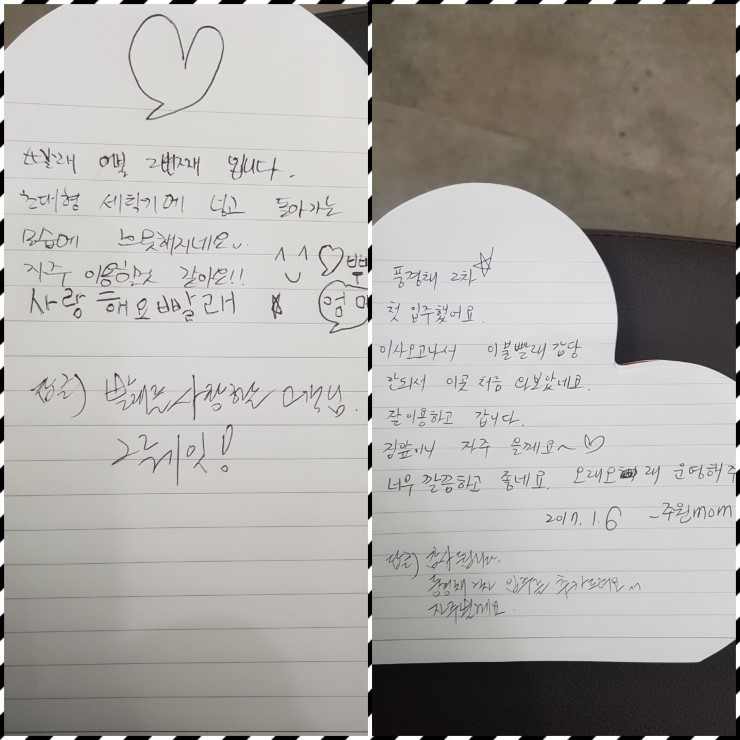 빨래 이불 2번째 입니다.
초대형 세탁기에 넣고 돌아가는
모습에 흐뭇해지네요
자주 이용할것 같아요!!
사랑해요 빨래
답글) 빨래를 사랑하는 고객님.
그레잇!
풍경채 2차
첫 입주했어요.
이사오고나서 이불빨래 감당
안되서 이곳 처음 와보았네요.
잘이용하고 갑니다.
집앞이니 자주 올께요~ ♡
너무 깔끔하고 좋네요. 오래오래 운영해주
2017.1.6 -주원mom
답글) 감사합니다.
풍경채 2차 입주를 축하드려요^^
자주뵐께요.